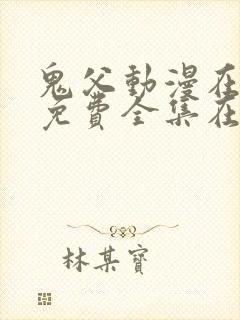 鬼父動漫在
免費全集在
林某寶